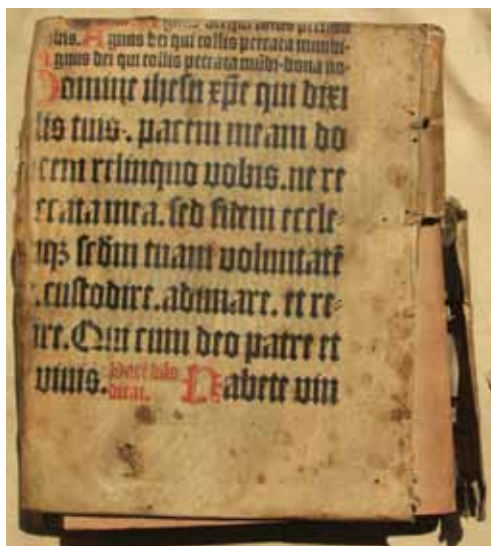 gnus dei qui tollis peccata mundi-
bis. Agnus dei qui tollis peccata mundi-
gnus dei qui tollis peccata mūdi-dona no-
Domine ihesu xp̄e qui dixi
lis tuis. pacem meam do
cem relinquo vobis. ne re
eccata mea. sed fidem eccle-
sedm tuam voluntatē
custodire. adunare. et re-
ire. Qui cum deo patre et
vivis.
dicat.
Habete vin